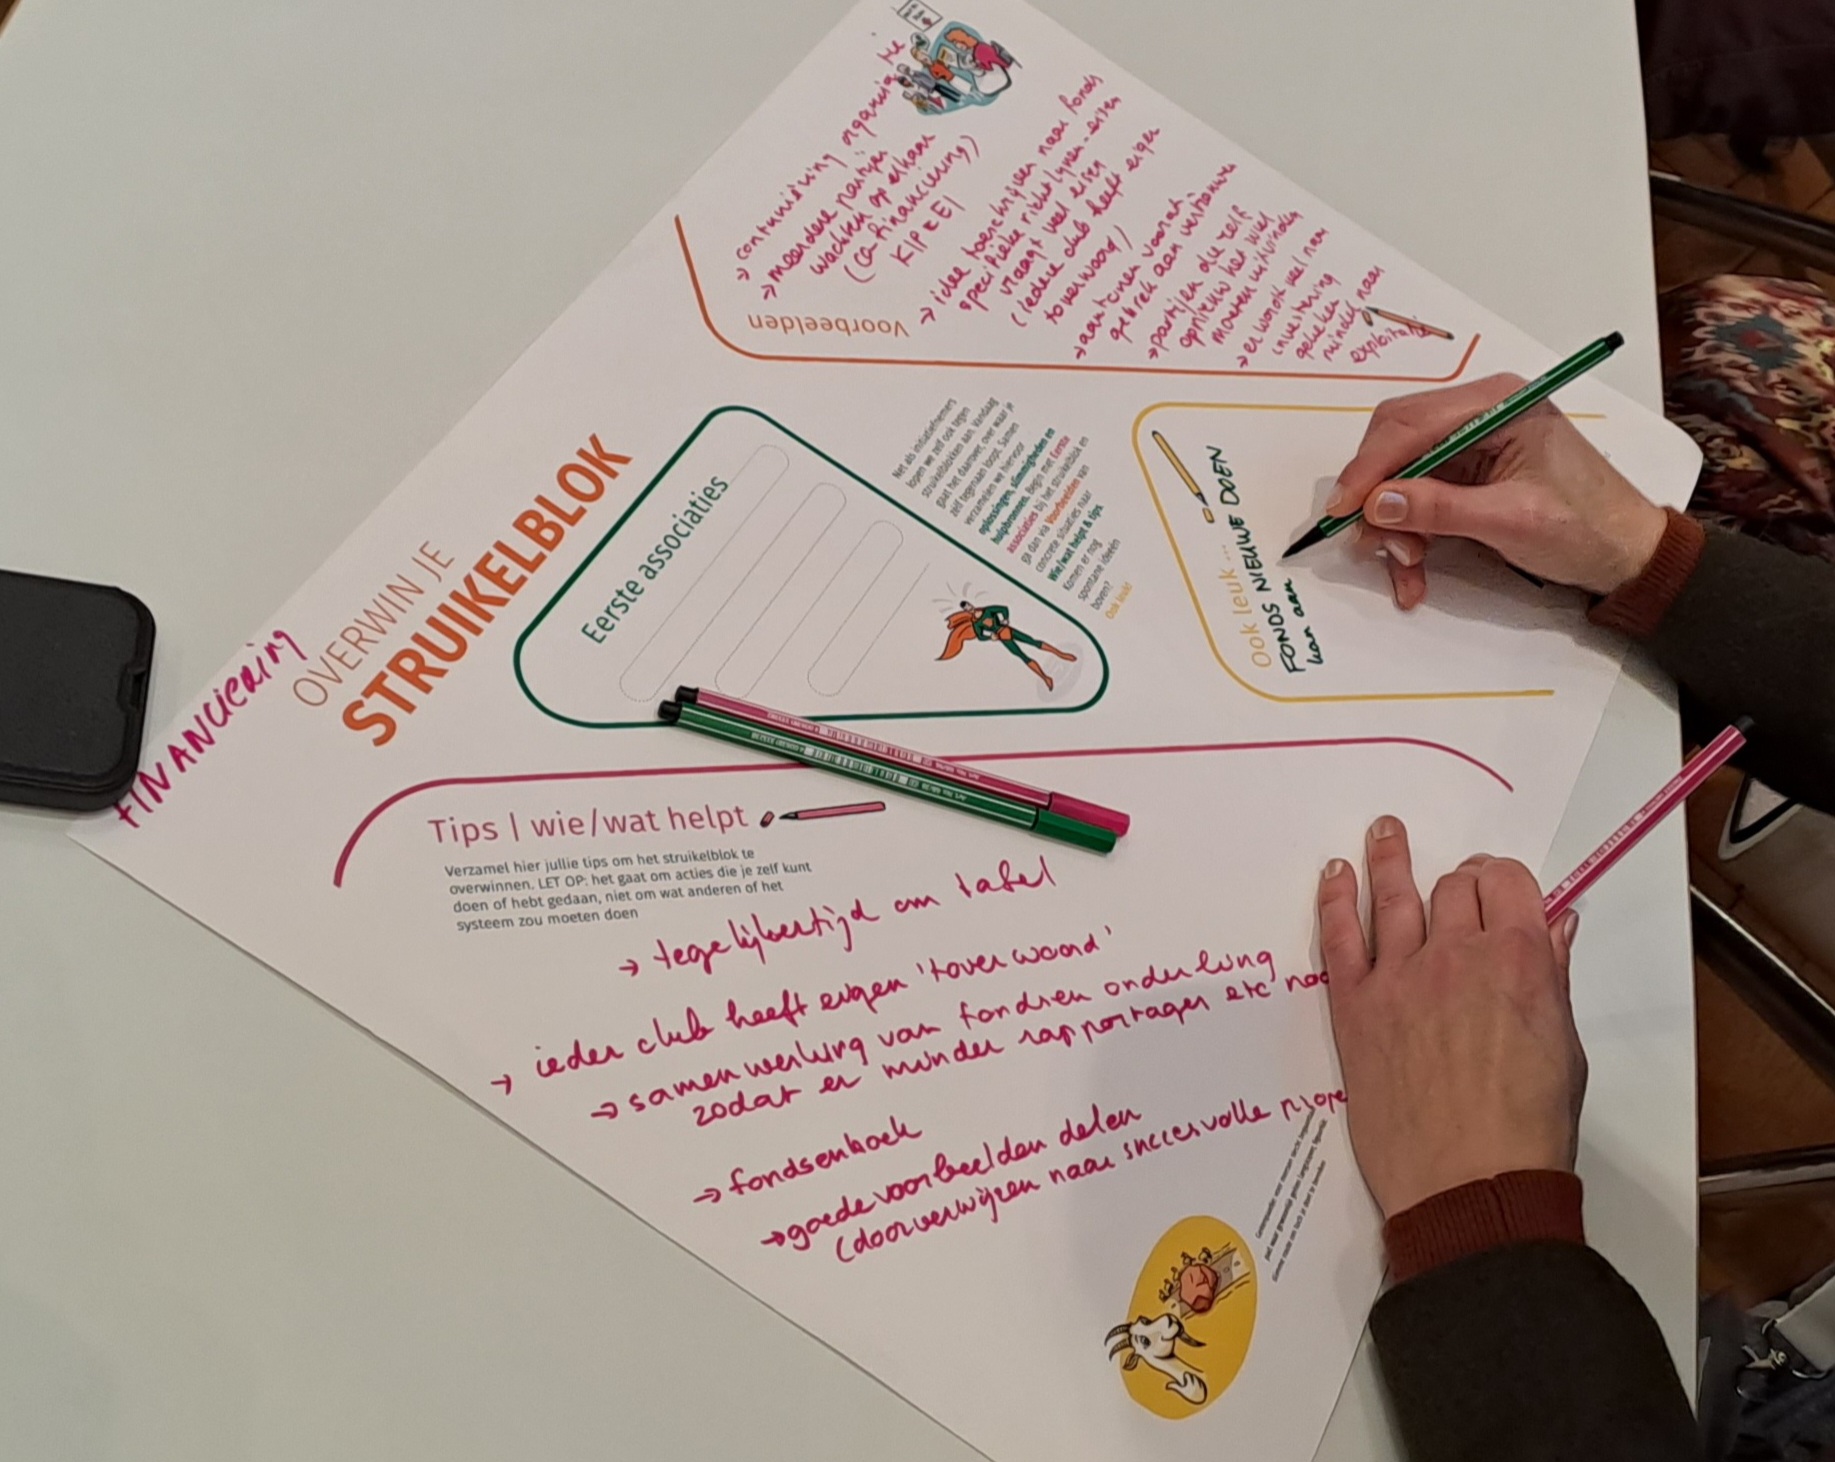 FINANCIERING
OVERWIN JE
STRUIKELBLOK
Eerste associaties
Net als initiatiefnemers
lopen we zelf ook tegen
struikelblokken aan. Vandaag
gaat het daarover, over waar je
zelf tegenaan loopt. Samen
verzamelen we hiervoor
oplossingen, slimmigheden en
hulpbronnen. Begin met Eerste
associaties bij het struikelblok en
ga dan via Voorbeelden van
concrete situaties naar
Wie/wat helpt & tips.
Komen er nog
spontane ideeën
boven?
Ook leuk!
Voorbeelden
→ continuïteit organisatie
→ meerdere partijen
wachten op elkaar
(co-financiering)
KIP & EI
→ idee toeschrijven naar fonds
specifieke richtlijnen - eisen
vraagt veel eisen
(iedere club heeft eigen
toverwoord)
→ aantonen vooraf
gebrek aan vertrouwen
→ partijen die zelf
opnieuw het wiel
moeten uitvinden
→ er wordt veel naar
investering
gekeken
minder naar
exploitatie
Ook leuk...
FONDS NIEUWE DOEN
kan aan
Tips | wie/wat helpt
Verzamel hier jullie tips om het struikelblok te
overwinnen. LET OP: het gaat om acties die je zelf kunt
doen of hebt gedaan, niet om wat anderen of het
systeem zou moeten doen
→ tegelijkertijd om tafel
→ ieder club heeft eigen 'toverwoord'
→ samenwerking van fondsen onderling
zodat er minder rapportages etc
→ fondsenboek
→ goede voorbeelden delen
(doorverwijzen naar succesvolle